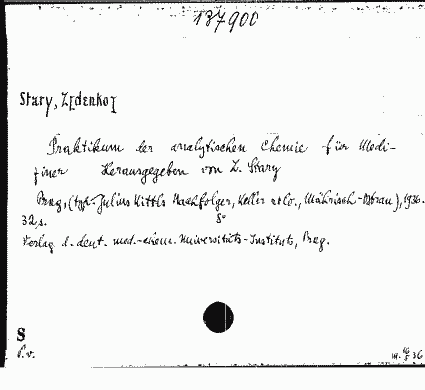 137900
Stary, Z[denko]
Praktikum der analytischen Chemie für Medi-
ziner Herausgegeben von Z. Stary
Prag, (typ. Julius Kittls Nachfolger, Keller &Co., Mährisch-Ostrau), 1936.
32 s. 8°
Verlag d. deut. med.-chem. Universitäts-Instituts, Prag.
S
P.v.
36